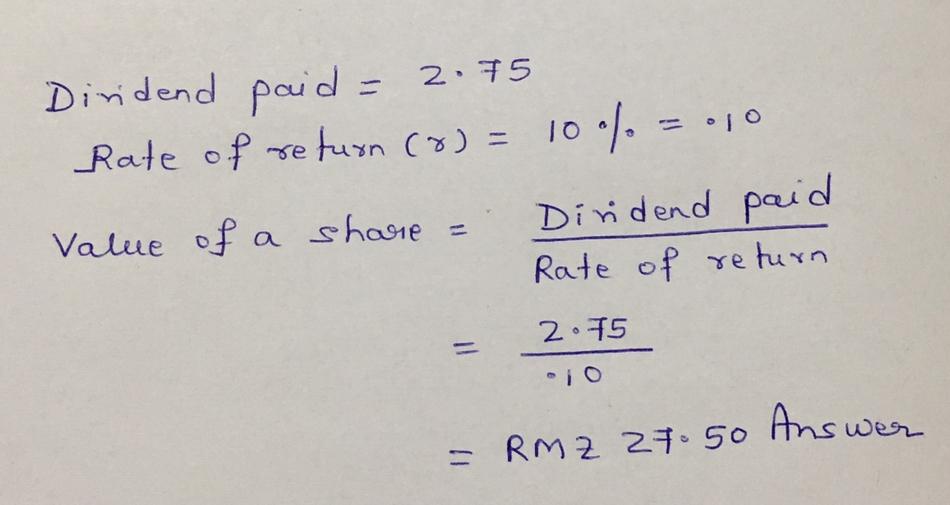 Dividend paid = 2.75
Rate of return (r) = 10 % = .10
Value of a share = Dividend paid / Rate of return
= 2.75 / .10
= RMZ 27.50 Answer